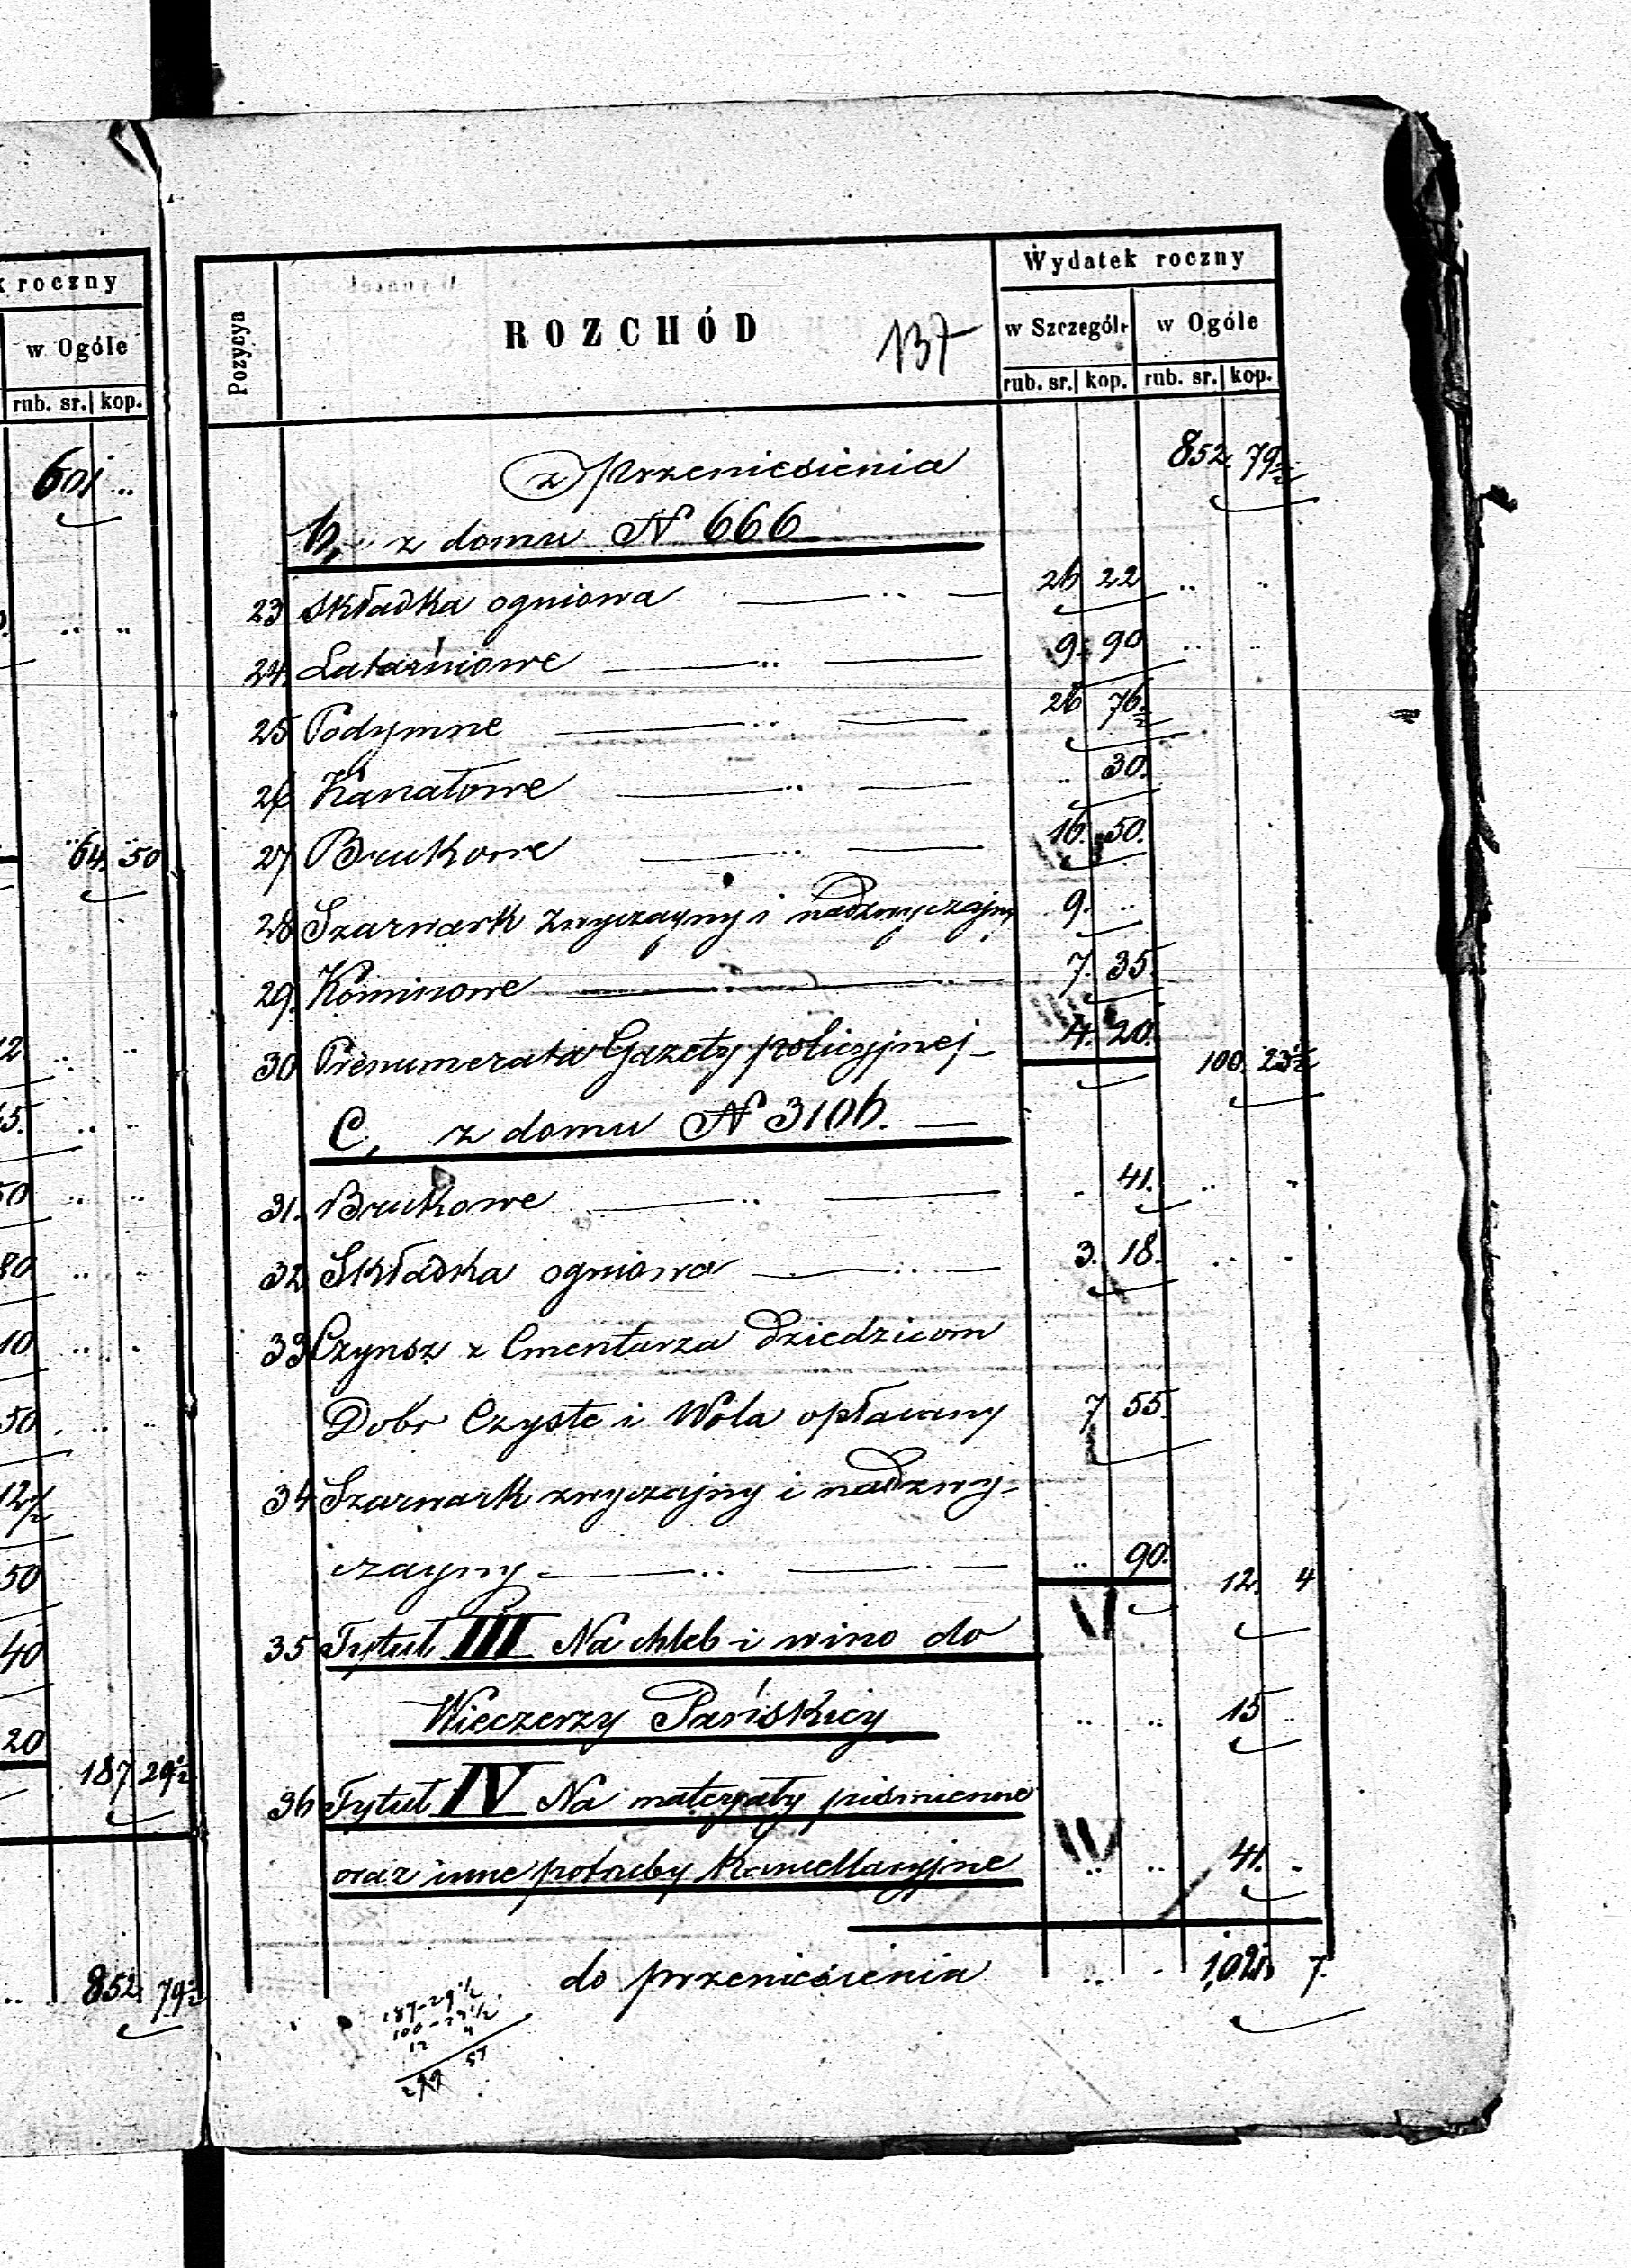 k roczny
w Ogóle
rub. sr. kop.
601 ..
64. 50
12
5.
50
80
10
50
12½
50
40
20
187 29½
852 79½
Pozycya
ROZCHÓD
137
Wydatek roczny
w Szczególe w Ogóle
rub. sr. kop. rub. sr. kop.
z przeniesienia 852. 79½
b, z domu N 666
23 Składka ogniowa 26 22 .. ..
24. Latarniowe 9. 90 .. ..
25 Podymne 26 76½
26 Kanałowe .. 30.
27 Brukowe 16. 50.
28 Szarwark zwyczayny i nadzwyczajny 9. ..
29. Kominowe 7. 35.
30 Prenumerata Gazety policyjnej 4. 20. 100. 23½
C, z domu N 3106.
31. Brukowe . 41. .. ..
32 Składka ogniowa 3. 18. .. .
33 Czynsz z Cmentarza dziedzicom
Dobr Czyste i Wola opłacany 7 55.
34 Szarwark zwyczajny i nadzwy-
czayny .. 90. 12. 4
35 Tytuł III Na chleb i wino do
Wieczerzy Pańskiey .. .. 15 ..
36 Tytuł IV Na materyały piśmienne
oraz inne potrzeby Kancellaryjne .. .. 41. .
do przeniesienia .. . 1,021 7.
187-29½
100-23½
12 4
299 57